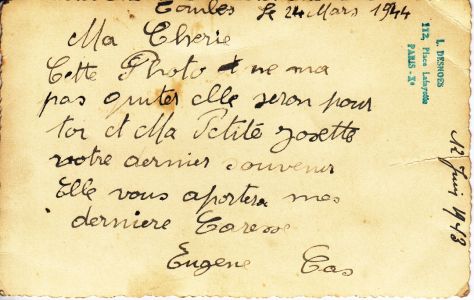 Tombes le 24 Mars 1944
Ma Cherie
Cette Photo ne ma
pas quiter elle seron pour
toi et Ma Petite Josette
votre dernier souvenir
Elle vous aportera mes
derniere Caresse
Eugene Cas
L. DESNOES
112, Place Lafayette
PARIS - Xe
12 Juin 1943